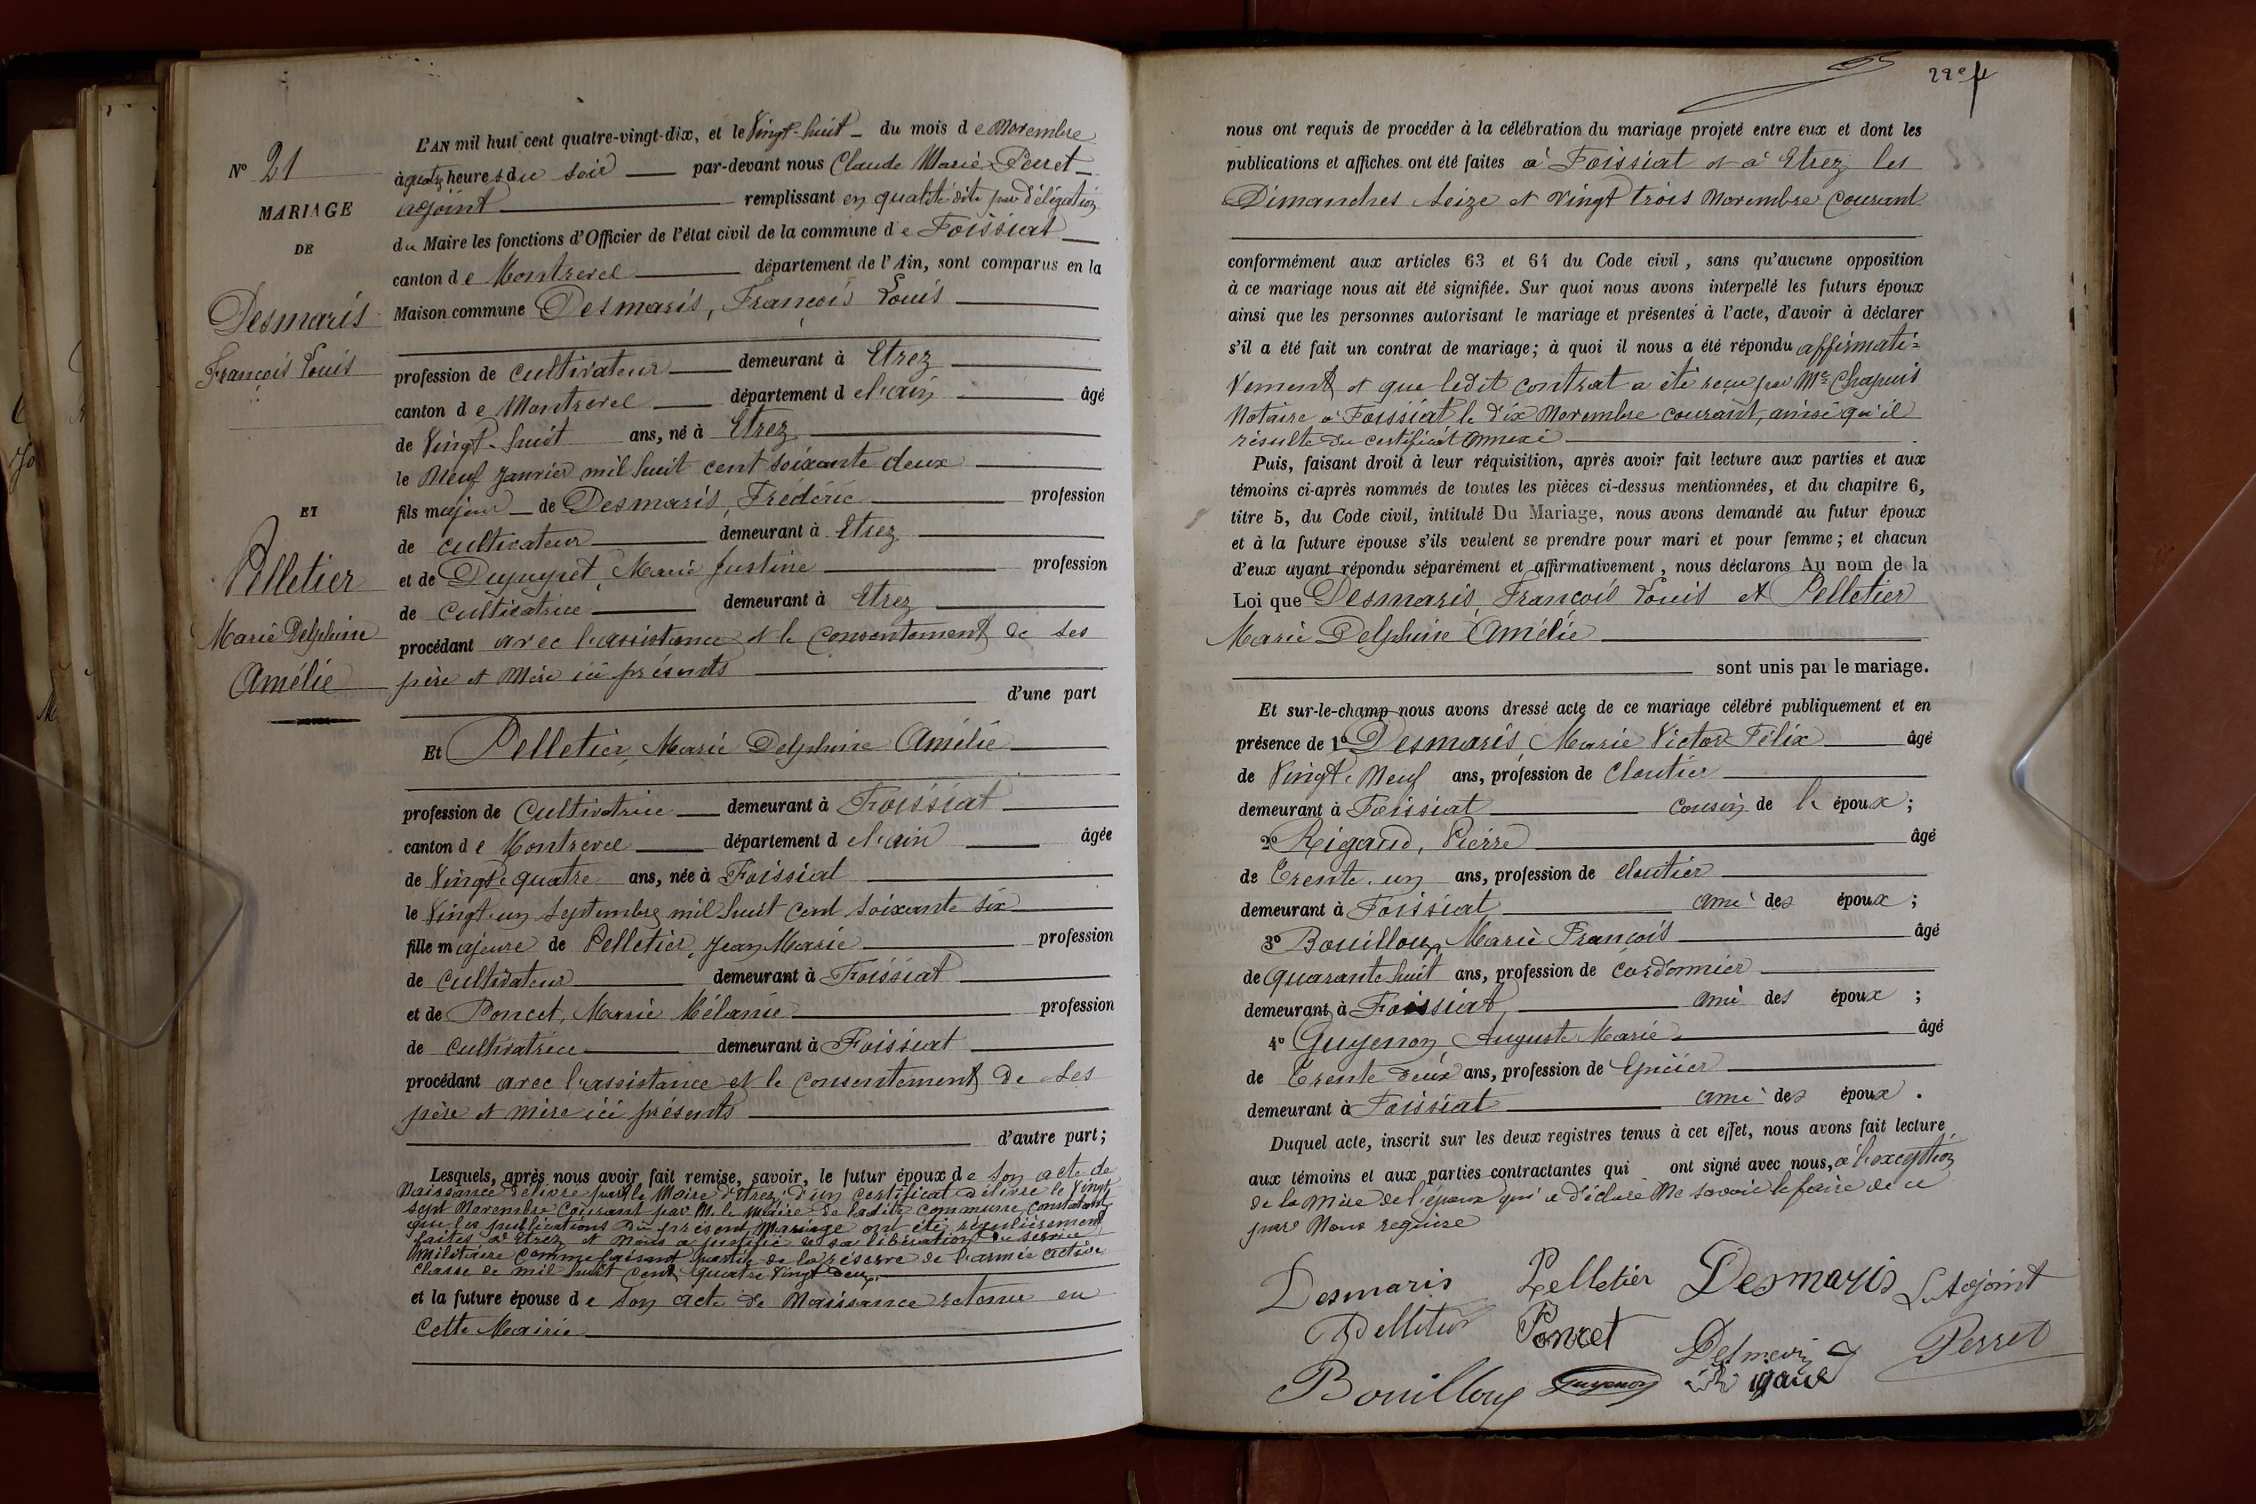 L'AN mil huit cent quatre-vingt-dix, et le Vingt-huit du mois de Novembre
N° 21
à quatre heures du soir par-devant nous Claude Marie Perret
MARIAGE
adjoint remplissant en qualité dite par délégation
DE
du Maire les fonctions d'Officier de l'état civil de la commune de Foissiat
canton de Montrevel département de l'Ain, sont comparus en la
Desmaris
Maison commune Desmaris, François Louis
François Louis
profession de cultivateur demeurant à Etrez
canton de Montrevel département de l'ain âgé
de Vingt-huit ans, né à Etrez
le Neuf Janvier mil huit cent soixante deux
ET
fils majeur de Desmaris, Frédéric profession
de cultivateur demeurant à Etrez
Pelletier
et de Dupupet, Marie Justine profession
de cultivatrice demeurant à Etrez
Marie Delphine
procédant avec l'assistance et le consentement de ses
Amélie
père et mère ici présents
d'une part
Et Pelletier, Marie Delphine Amélie
profession de Cultivatrice demeurant à Foissiat
canton de Montrevel département de l'ain âgée
de Vingt quatre ans, née à Foissiat
le Vingt un Septembre mil huit cent soixante six
fille majeure de Pelletier, Jean Marie profession
de cultivateur demeurant à Foissiat
et de Poncet, Marie Mélanie profession
de cultivatrice demeurant à Foissiat
procédant avec l'assistance et le consentement de ses
père et mère ici présents
d'autre part;
Lesquels, après nous avoir fait remise, savoir, le futur époux de son acte de
Naissance délivré par le Maire d'Etrez, d'un certificat délivré le Vingt
sept Novembre courant par M. le Maire de ladite commune, constatant
que les publications du présent Mariage ont été régulièrement
faites à Etrez et nous a justifié de sa libération du service
militaire comme faisant partie de la réserve de l'armée active
classe de mil huit cent quatre vingt deux
et la future épouse de son acte de Naissance retenu en
cette Mairie
22e f
nous ont requis de procéder à la célébration du mariage projeté entre eux et dont les
publications et affiches ont été faites à Foissiat et à Etrez les
Dimanches Seize et Vingt trois Novembre courant
conformément aux articles 63 et 64 du Code civil, sans qu'aucune opposition
à ce mariage nous ait été signifiée. Sur quoi nous avons interpellé les futurs époux
ainsi que les personnes autorisant le mariage et présentes à l'acte, d'avoir à déclarer
s'il a été fait un contrat de mariage; à quoi il nous a été répondu affirmati=
vement et que ledit contrat a été reçu par Me Chapuis
Notaire à Foissiat le dix Novembre courant, ainsi qu'il
résulte du certificat annexé
Puis, faisant droit à leur réquisition, après avoir fait lecture aux parties et aux
témoins ci-après nommés de toutes les pièces ci-dessus mentionnées, et du chapitre 6,
titre 5, du Code civil, intitulé Du Mariage, nous avons demandé au futur époux
et à la future épouse s'ils veulent se prendre pour mari et pour femme; et chacun
d'eux ayant répondu séparément et affirmativement, nous déclarons Au nom de la
Loi que Desmaris, François Louis et Pelletier
Marie Delphine Amélie
sont unis par le mariage.
Et sur-le-champ nous avons dressé acte de ce mariage célébré publiquement et en
présence de 1° Desmaris Marie Victor Félix âgé
de Vingt Neuf ans, profession de cloutier
demeurant à Foissiat cousin de l' époux;
2° Rigaud, Pierre âgé
de Trente un ans, profession de cloutier
demeurant à Foissiat ami des époux;
3° Bouilloux Marie François âgé
de quarante huit ans, profession de cordonnier
demeurant à Foissiat ami des époux;
4° Guyennon Auguste Marie âgé
de Trente deux ans, profession de Epicier
demeurant à Foissiat ami des époux.
Duquel acte, inscrit sur les deux registres tenus à cet effet, nous avons fait lecture
aux témoins et aux parties contractantes qui ont signé avec nous, à l'exception
de la Mère de l'époux qui a déclaré Ne savoir le faire de ce
par Nous requise
Desmaris Pelletier Desmaris L'Adjoint
Pelletier Poncet Desmaris Perret
Bouilloux Guyennon Rigaud